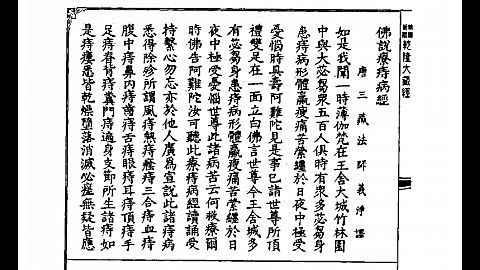 乾隆大藏經
佛說療痔病經
唐三藏法師義淨譯
如是我聞一時薄伽梵在王舍大城竹林園
中與大苾芻眾五百人俱時有眾多苾芻身
患痔病形體羸瘦痛苦縈纏於日夜中極受
憂惱時具壽阿難陀見是事已詣世尊所頂
禮雙足在一面立白佛言世尊今王舍城多
有苾芻身患痔病形體羸瘦痛苦縈纏於日
夜中極受憂惱世尊此諸病苦云何救療爾
時佛告阿難陀汝可聽此療痔病經讀誦受
持繫心勿忘亦於他人廣為宣說此諸痔病
悉得除殄所謂風痔熱痔癊痔三合痔血痔
腹中痔鼻內痔齒痔舌痔眼痔耳痔頂痔手
足痔脊背痔糞門痔遍身支節所生諸痔如
是痔瘻悉皆乾燥墮落消滅必瘥無疑皆應